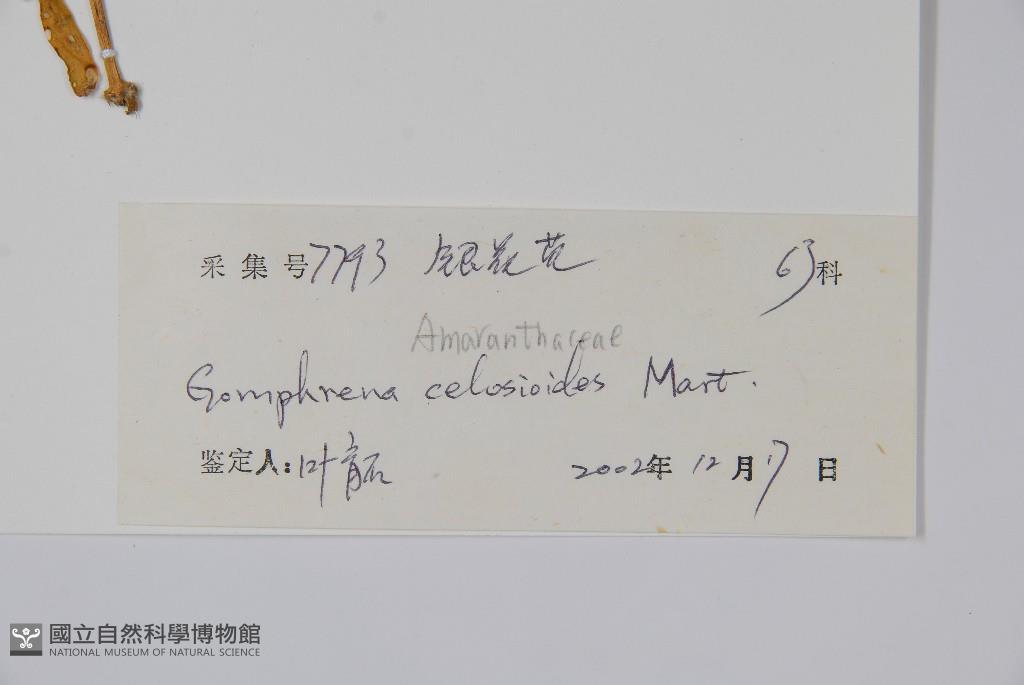 采集号7793 银花苋 63科
Amaranthaceae
Gomphrena celosioides Mart.
鉴定人:叶
2002年12月17日
國立自然科學博物館
NATIONAL MUSEUM OF NATURAL SCIENCE